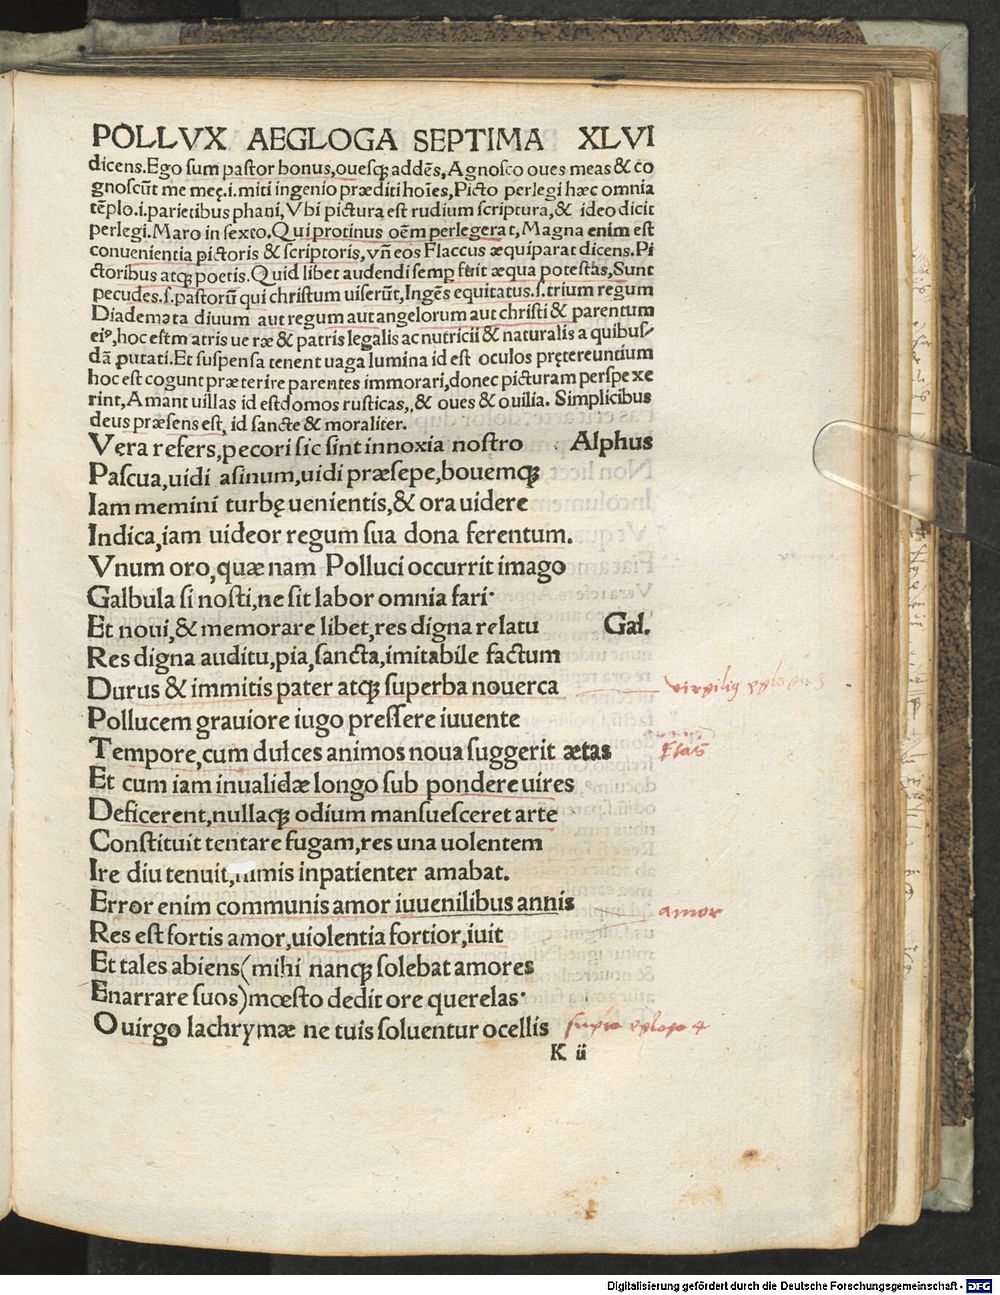 POLLVX AEGLOGA SEPTIMA XLVI
dicens.Ego ſum paſtor bonus,oueſqꝫ addēs,Agnoſco oues meas & co
gnoſcūt me meę.i.miti ingenio præditi hoīes,Picto perlegi hæc omnia
tēplo.i.parietibus phani,Vbi pictura eſt rudium ſcriptura,& ideo dicit
perlegi.Maro in ſexto.Qui protinus oēm perlegerat,Magna enim eſt
conuenientia pictoris & ſcriptoris,vñ eos Flaccus æquiparat dicens.Pi
ctoribus atqꝫ poetis.Quid libet audendi ſemꝑ fuit æqua poteſtas,Sunt
pecudes.ſ.paſtorū qui chriſtum uiſerūt,Ingēs equitatus.ſ.trium regum
Diademata diuum aut regum aut angelorum aut chriſti & parentum
eiꝰ,hoc eſtm atris ue ræ & patris legalis ac nutricii & naturalis a quibuſ
dā ꝓutati.Et ſuſpenſa tenent uaga lumina id eſt oculos pręterеuntium
hoc eſt cogunt præterire parentes immorari,donec picturam perſpexe
rint,Amant uillas id eſtdomos ruſticas,,& oues & ouilia. Simplicibus
deus præſens eſt, id ſancte & moraliter.
Vera refers,pecori ſic ſint innoxia noſtro Alphus
Paſcua,uidi aſinum,uidi præſepe,bouemqꝫ
Iam memini turbę uenientis,& ora uidere
Indica,iam uideor regum ſua dona ferentum.
Vnum oro,quæ nam Polluci occurrit imago
Galbula ſi noſti,ne ſit labor omnia fari·
Et noui,& memorare libet,res digna relatu Gal.
Res digna auditu,pia,ſancta,imitabile factum
Durus & immitis pater atqꝫ ſuperba nouerca virgilius egloga 3
Pollucem grauiore iugo preſſere iuuente
Tempore,cum dulces animos noua ſuggerit ætas Etas
Et cum iam inualidæ longo ſub pondere uires
Deficerent,nullaqꝫ odium manſueſceret arte
Conſtituit tentare fugam,res una uolentem
Ire diu tenuit,nimis inpatienter amabat.
Error enim communis amor iuuenilibus annis amor
Res eſt fortis amor,uiolentia fortior,iuit
Et tales abiens(mihi nanqꝫ ſolebat amores
Enarrare ſuos)mœſto dedit ore querelas·
O uirgo lachrymæ ne tuis ſoluentur ocellis supra egloga 4
K ii
Digitalisierung gefördert durch die Deutsche Forschungsgemeinschaft - DFG